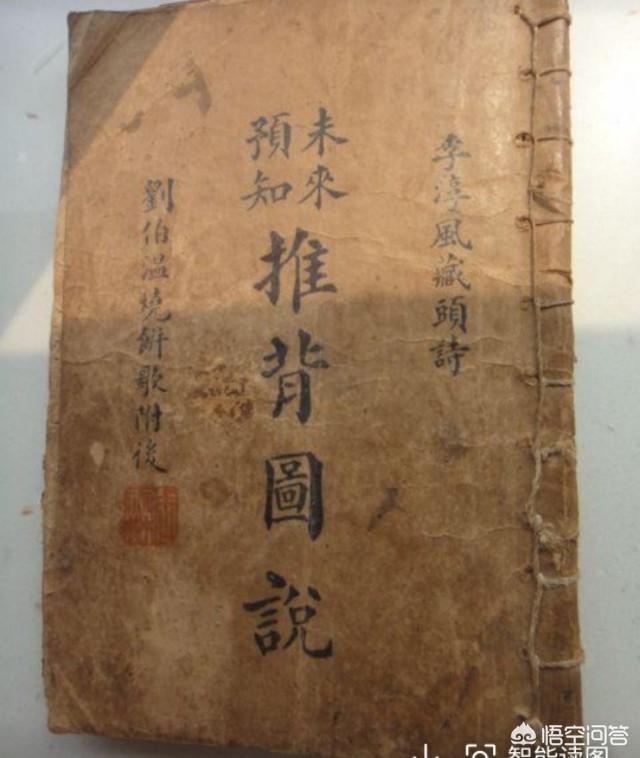 李淳風藏頭詩
未來
預知
推背圖說
劉伯溫燒餅歌附後
悟空问答
智能读图